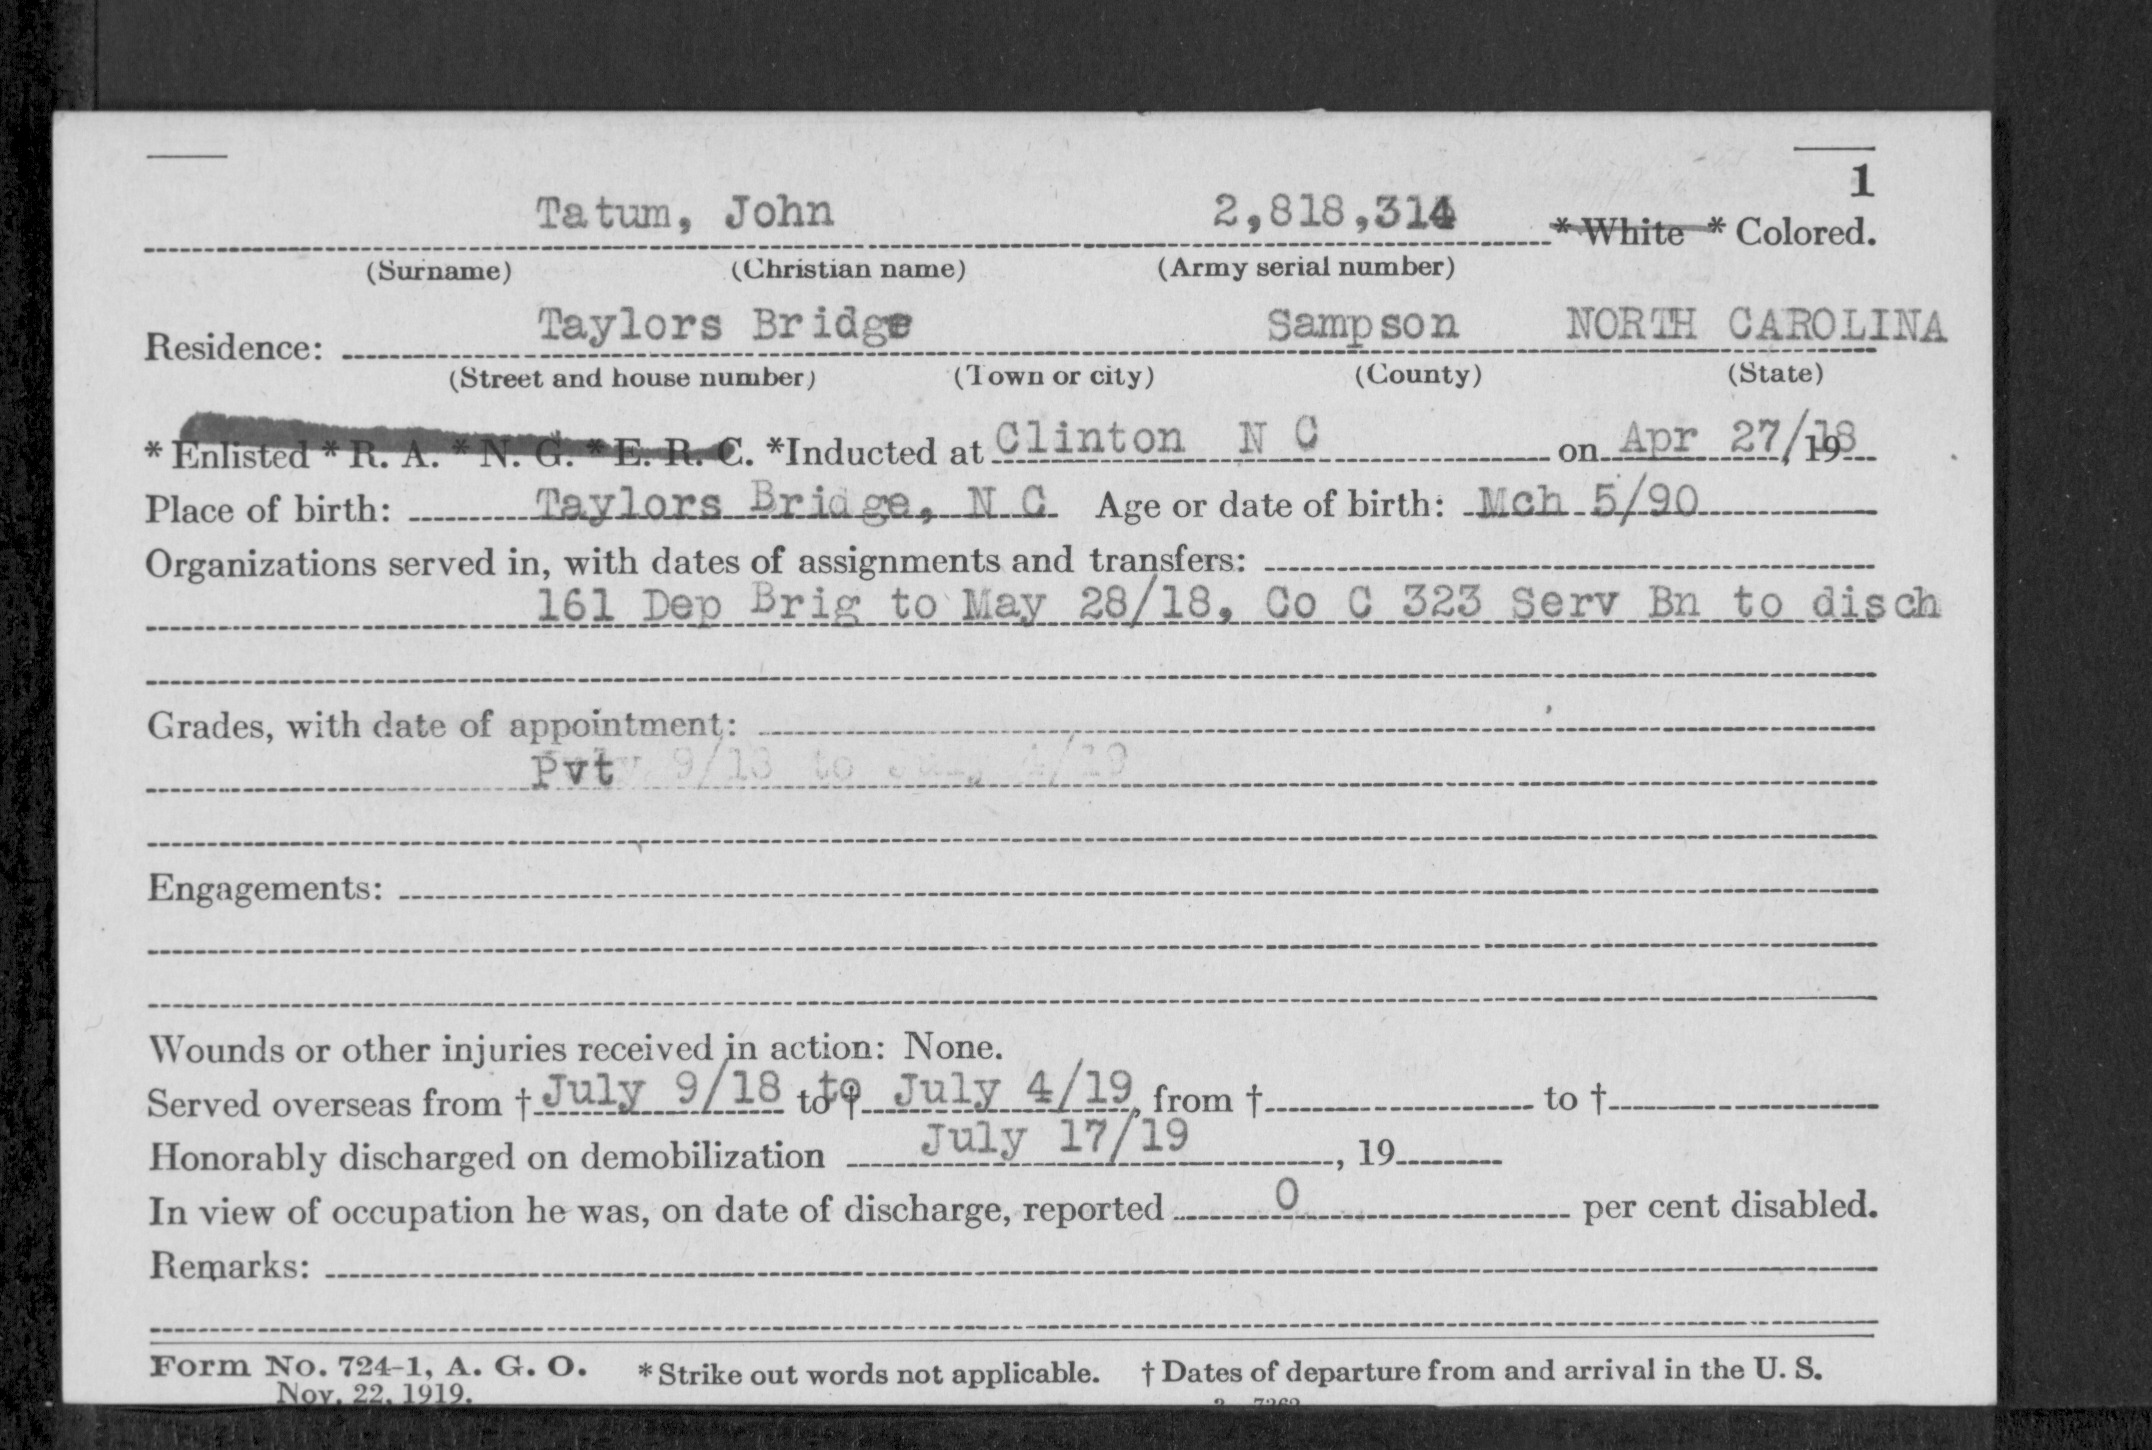 1
Tatum, John 2,818,314 * White * Colored.
(Surname) (Christian name) (Army serial number)
Residence: Taylors Bridge Sampson NORTH CAROLINA
(Street and house number) (Town or city) (County) (State)
* Enlisted * R. A. * N. G. * E. R. C. *Inducted at Clinton N C on Apr 27/18, 19
Place of birth: Taylors Bridge, N C Age or date of birth: Mch 5/90
Organizations served in, with dates of assignments and transfers:
161 Dep Brig to May 28/18, Co C 323 Serv Bn to disch
Grades, with date of appointment:
Pvt
Engagements:
Wounds or other injuries received in action: None.
Served overseas from † July 9/18 to † to July 4/19, from † to †
Honorably discharged on demobilization July 17/19, 19
In view of occupation he was, on date of discharge, reported 0 per cent disabled.
Remarks:
Form No. 724-1, A. G. O. * Strike out words not applicable. † Dates of departure from and arrival in the U. S.
Nov. 22, 1919.